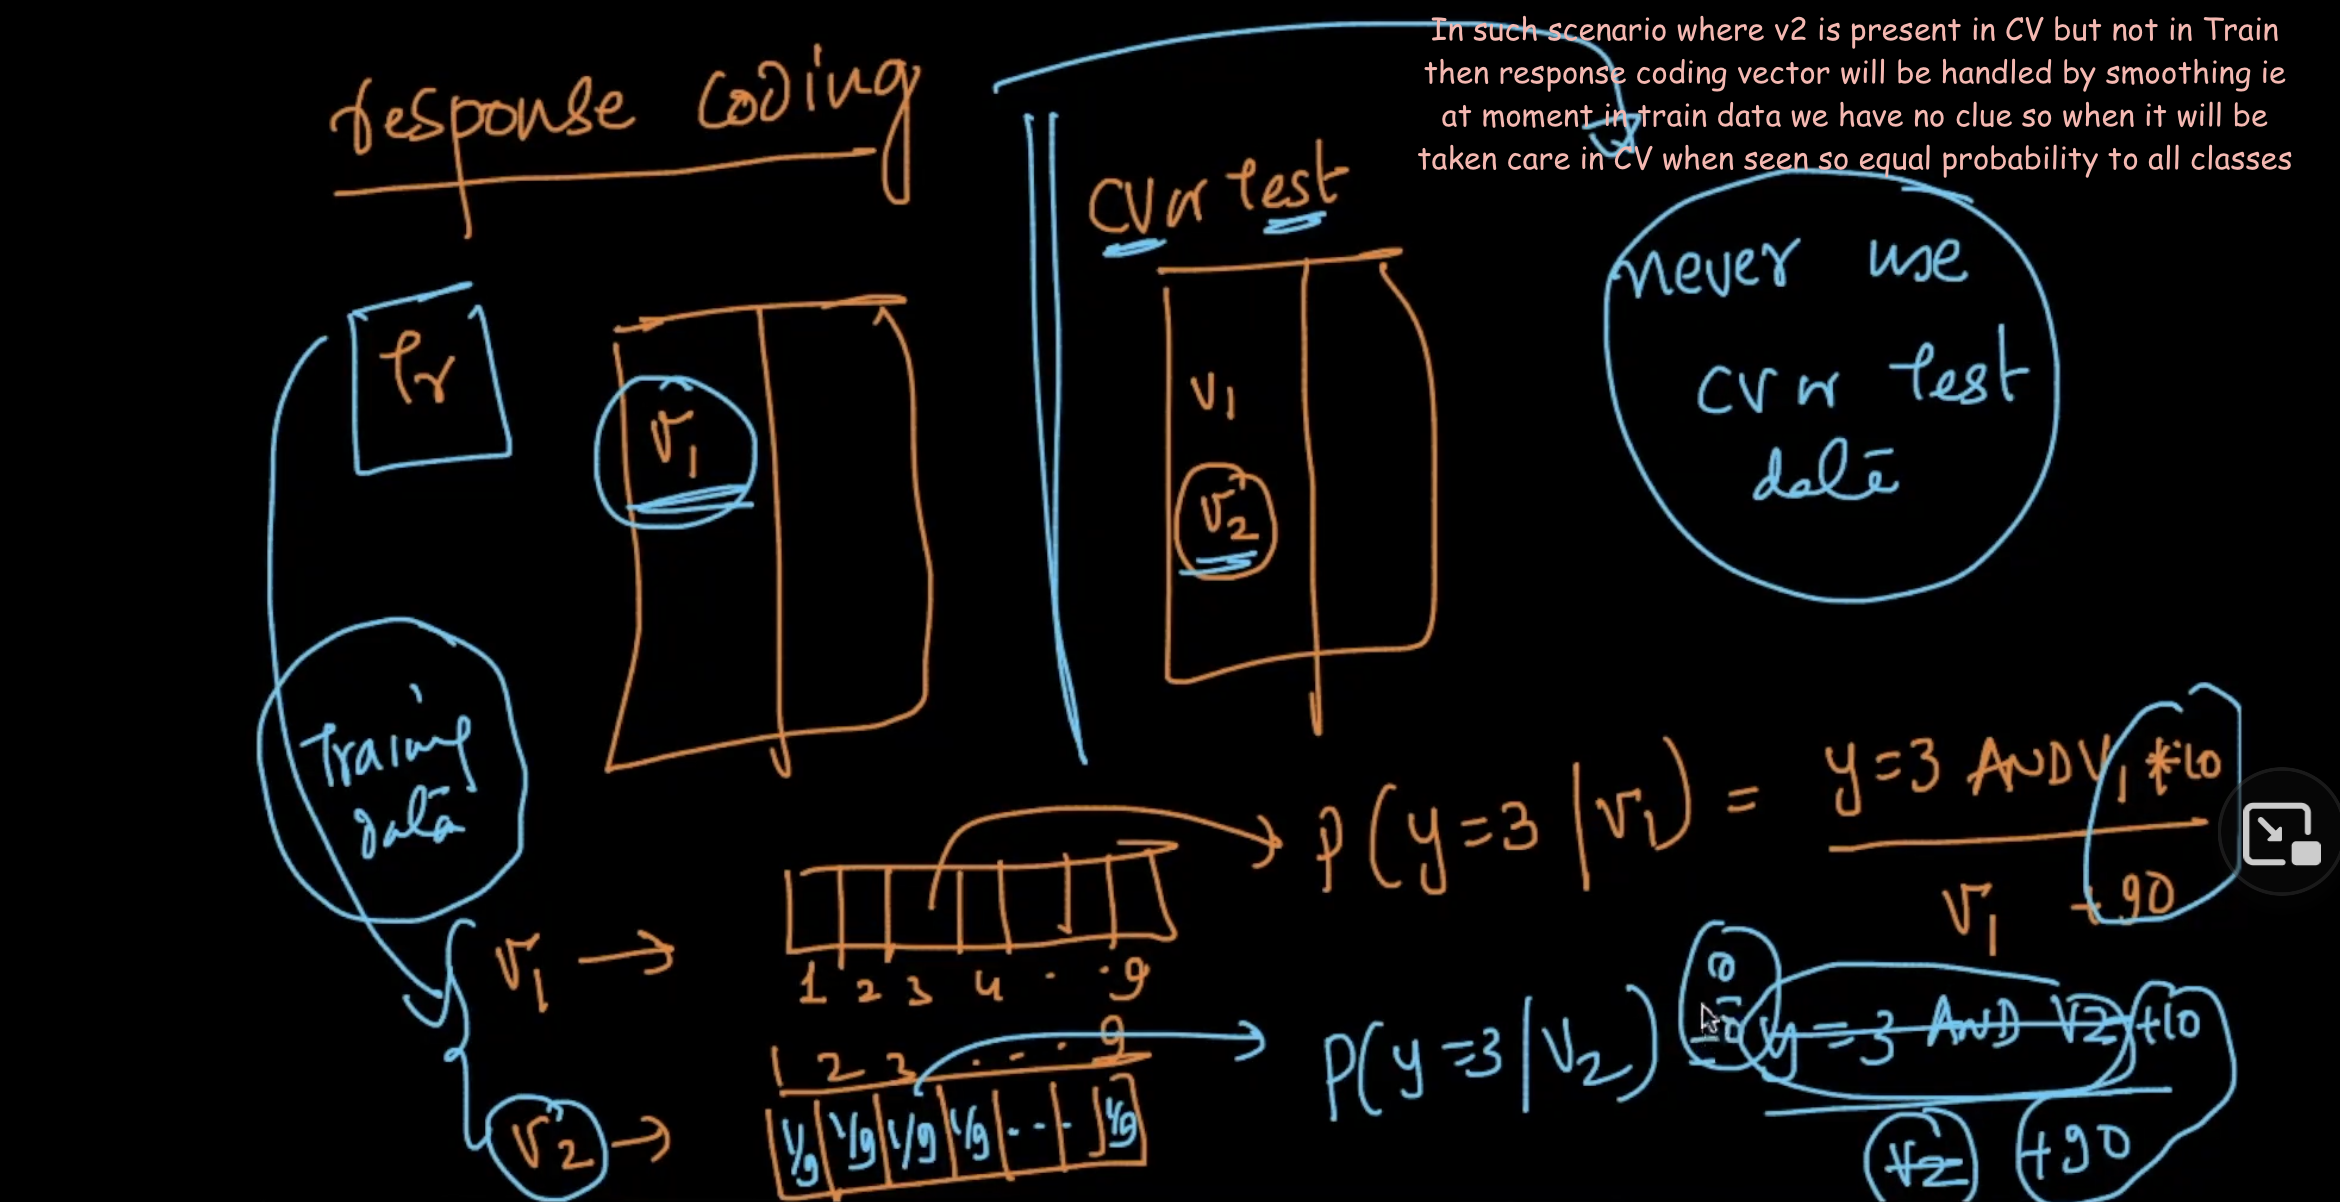 In such scenario where v2 is present in CV but not in Train
then response coding vector will be handled by smoothing ie
at moment in train data we have no clue so when it will be
taken care in CV when seen so equal probability to all classes
response coding
CV or test
never use
CV or test
data
Tr
V1
V1
V2
Training
data
P(y=3|V1) = y=3 AND V1 +10
V1 +90
V1 →
1 2 3 4 . . 9
P(y=3|V2) = y=3 AND V2 +10
V2 +90
1 2 3 . - . 9
V2 →
1/9 1/9 1/9 1/9 . - - . 1/9